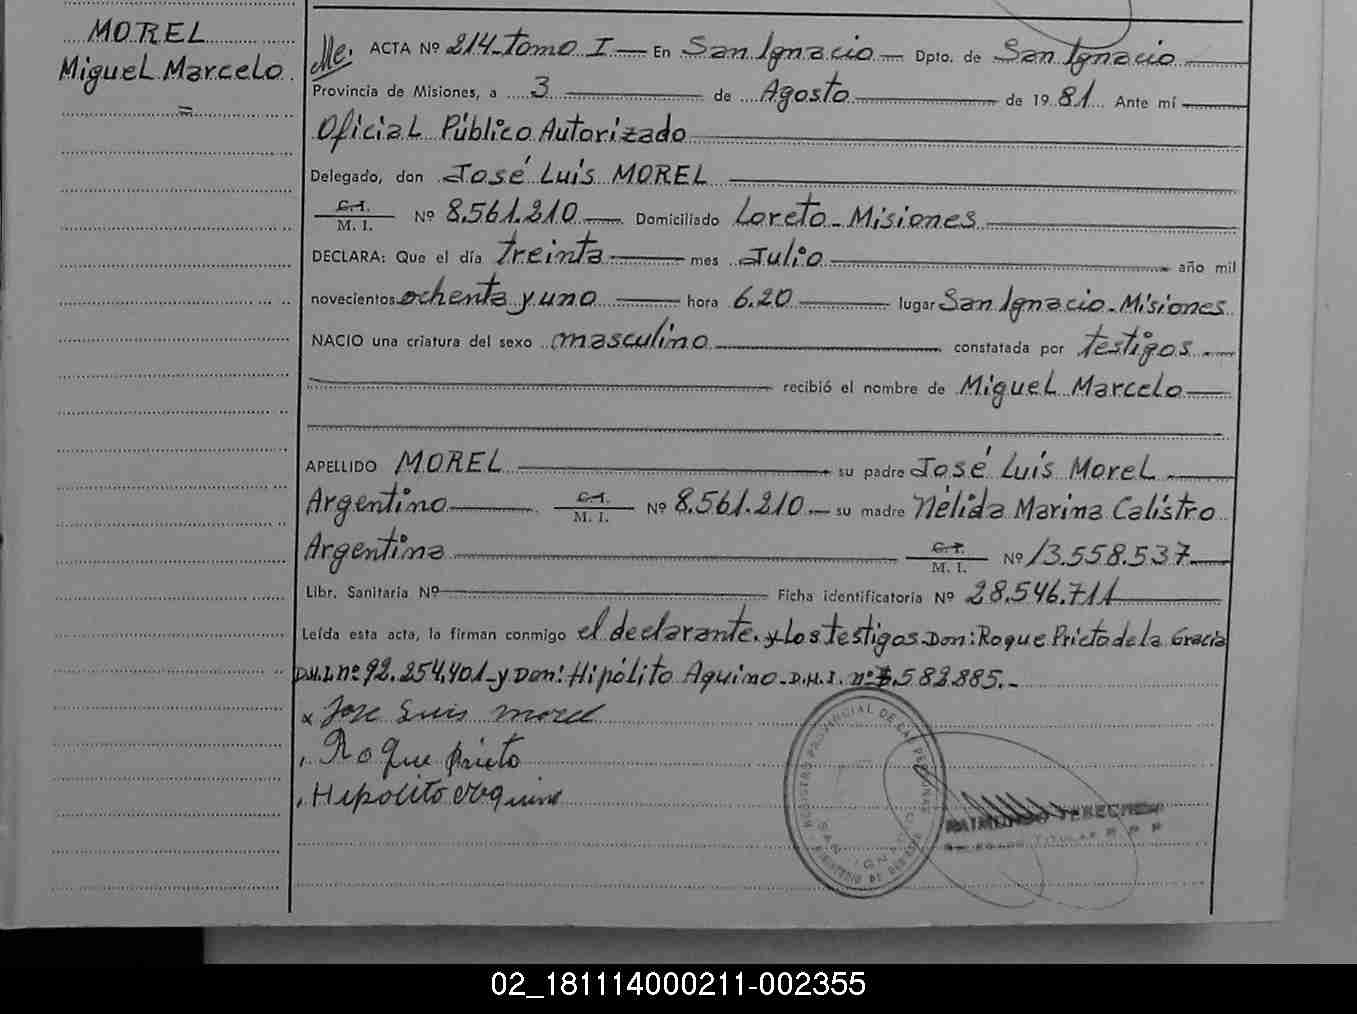 MOREL
Miguel Marcelo
=
Me. ACTA Nº 214 - Tomo I - En San Ignacio - Dpto. de San Ignacio
Provincia de Misiones, a 3 de Agosto de 1981 Ante mí
Oficial Público Autorizado
Delegado, don José Luis MOREL
C.I. M. I. Nº 8.561.210 Domiciliado Loreto - Misiones
DECLARA: Que el día treinta mes Julio año mil
novecientos ochenta y uno hora 6.20 lugar San Ignacio - Misiones
NACIO una criatura del sexo masculino constatada por testigos
recibió el nombre de Miguel Marcelo
APELLIDO MOREL su padre José Luis Morel
Argentino C.I. M. I. Nº 8.561.210 su madre Nélida Marina Calistro
Argentina C.I. M. I. Nº 13.558.537
Libr. Sanitaria Nº Ficha identificatoria Nº 28.546.711
Leída esta acta, la firman conmigo el declarante. y Los testigos Don: Roque Prieto de la Gracia
D.N.I. nº 92.254.401 - y Don: Hipólito Aquino - D.N.I. nº .583.885.-
x Jose Luis Morel
Roque Prieto
Hipolito Aquino
REGISTRO PROVINCIAL DE LAS PERSONAS
SAN IGNACIO
RAIMUNDO
02_181114000211-002355